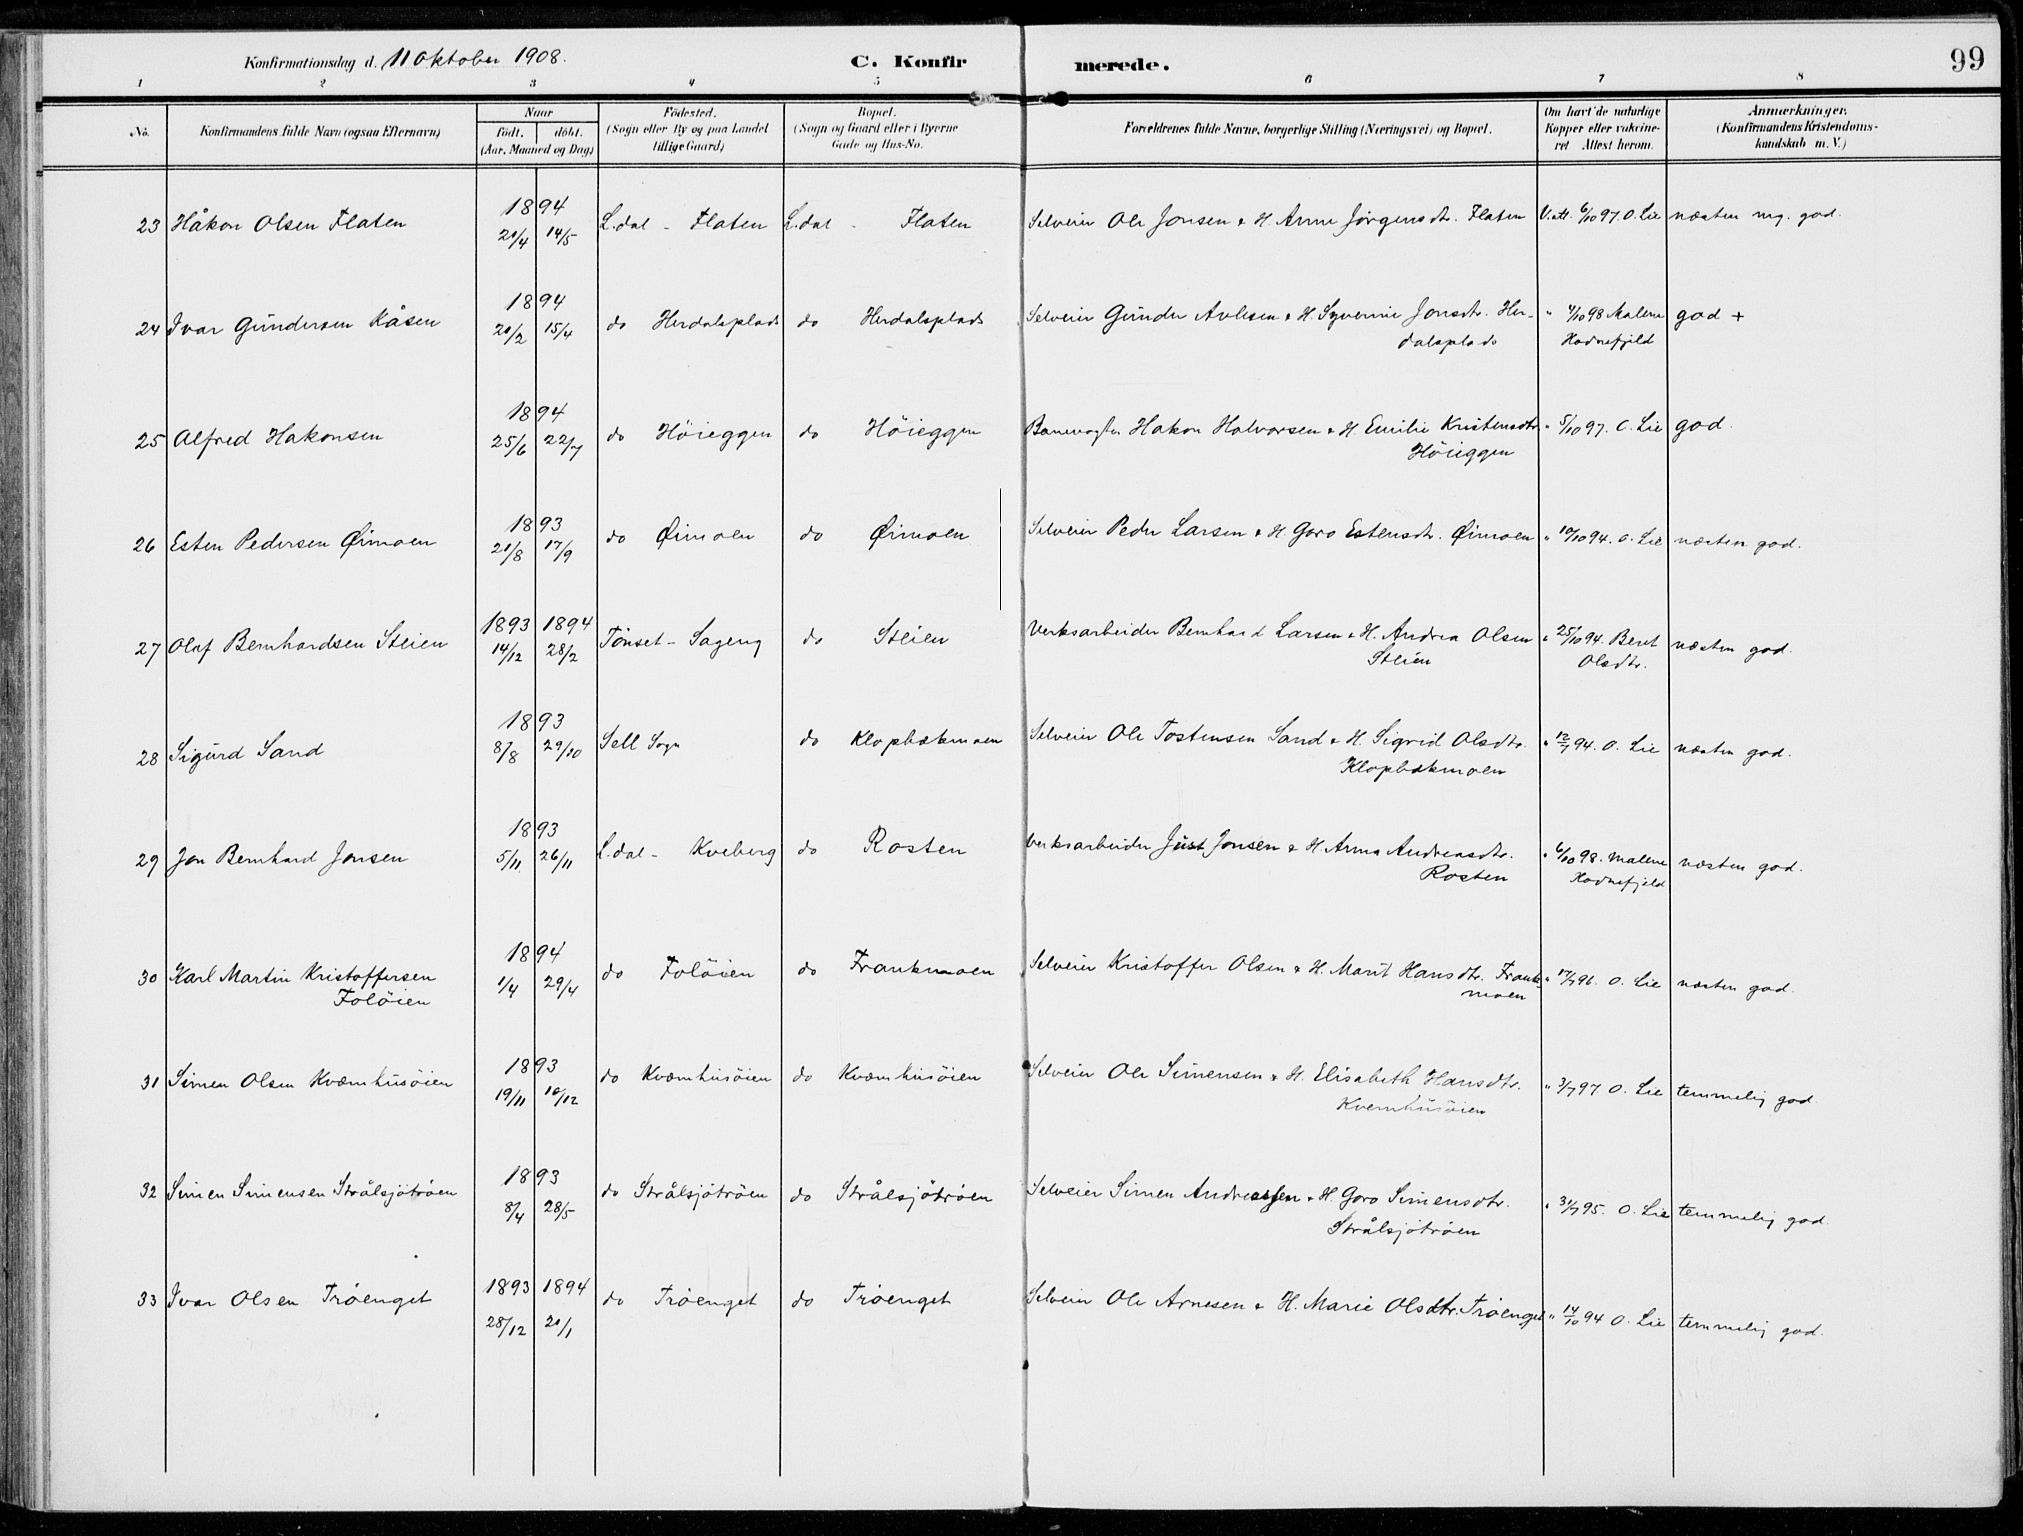 Konfirmationsdag d. 11 Oktober 1908. C. Konfirmerede. 99
1 2 3 4 5 6 7 8
No. Konfirmandens fulde Navn (ogsaa Efternavn) Naar født. døbt. (Aar, Maaned og Dag) Fødested. (Sogn eller By og paa Landet tillige Gaard) Bopæl. (Sogn og Gaard eller i Byerne Gade og Hus-No. Forældrenes fulde Navne, borgerlige Stilling (Næringsvei) og Bopæl. Om havt de naturlige Kopper eller vakcineret Attest herom. Anmærkninger. (Konfirmandens Kristendomskundskab m. V.)
1894
23 Håkon Olsen Flaten 21/4 14/5 L.dal - Flaten L.dal - Flaten Selveier Ole Jonsen & H. Anne Jørgensdtr. Flaten V. att. 6/10 97. O. Lie næsten mg. god.
1894
24 Ivar Gundersen Kåsen 21/2 15/4 do Herdalsplads do Herdalsplads Selveier Gunder Avlesen & H. Syverine Jonsdtr. Her-
dalsplads
" 4/10 98 Malene
Hovnefjeld
god +
1894
25 Alfred Hakonsen 25/6 22/7 do Höieggen do Höieggen Banevogter Hakon Halvorsen & H. Emilie Kristensdtr.
Höieggen
" 5/10 97. O. Lie god.
1893
26 Esten Pedersen Øimoen 21/8 17/9 do Øimoen do Øimoen Selveier Peder Larsen & H. Goro Estensdtr. Øimoen " 10/10 94. O. Lie næsten god.
1893 1894
27 Olaf Bernhardsen Steien 14/12 28/2 Tönset - Sageng do Steien Verksarbeider Bernhard Larsen & H. Andrea Olsen
Steien
" 25/10 94. Beret
Olsdtr.
næsten god.
1893
28 Sigurd Sand 8/8 29/10 Sell Sogn do Klopbækmoen Selveier Ole Tostensen Sand & H. Sigrid Olsdtr.
Klopbækmoen
" 12/7 94. O. Lie næsten god.
1893
29 Jon Bernhard Jonsen 5/11 26/11 L.dal - Kveberg do Rosten Verksarbeider Just Jonsen & H. Anna Andreasdtr.
Rosten
" 6/10 98. Malene
Hovnefjeld
næsten god.
1894
30 Karl Martin Kristoffersen
Folöien
1/4 29/4 do Folöien do Frankmoen Selveier Kristoffer Olsen & H. Marit Hansdtr. Frank-
moen
" 17/7 96. O. Lie næsten god.
1893
31 Simen Olsen Kvæmhusöien 19/11 10/12 do Kvæmhusöien do Kvæmhusöien Selveier Ole Simensen & H. Elisabeth Hansdtr.
Kvernhusöien
" 3/7 97. O. Lie temmelig god.
1893
32 Simen Simensen Strålsjötröen 8/4 28/5 do Strålsjötröen do Strålsjötröen Selveier Simen Andreassen & H. Goro Simensdtr.
Strålsjötröen
" 31/7 95. O. Lie temmelig god.
1893 1894
33 Ivar Olsen Tröenget 28/12 21/1 do Tröenget do Tröenget Selveier Ole Arnesen & H. Marie Olsdtr. Tröenget " 14/10 94 O. Lie temmelig god.